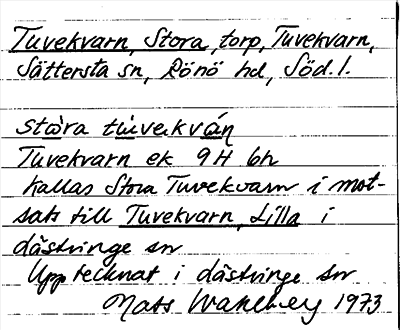 Tuvekvarn, Stora, torp, Tuvekvarn,
Sättersta sn, Rönö hd, Söd. l.
stòra tùvekván
Tuvekvarn ek 9 H bh
kallas Stora Tuvekvarn i mot-
sats till Tuvekvarn, Lilla i
Lästringe sn
Upptecknat i Lästringe sn
Mats Wahlberg 1973